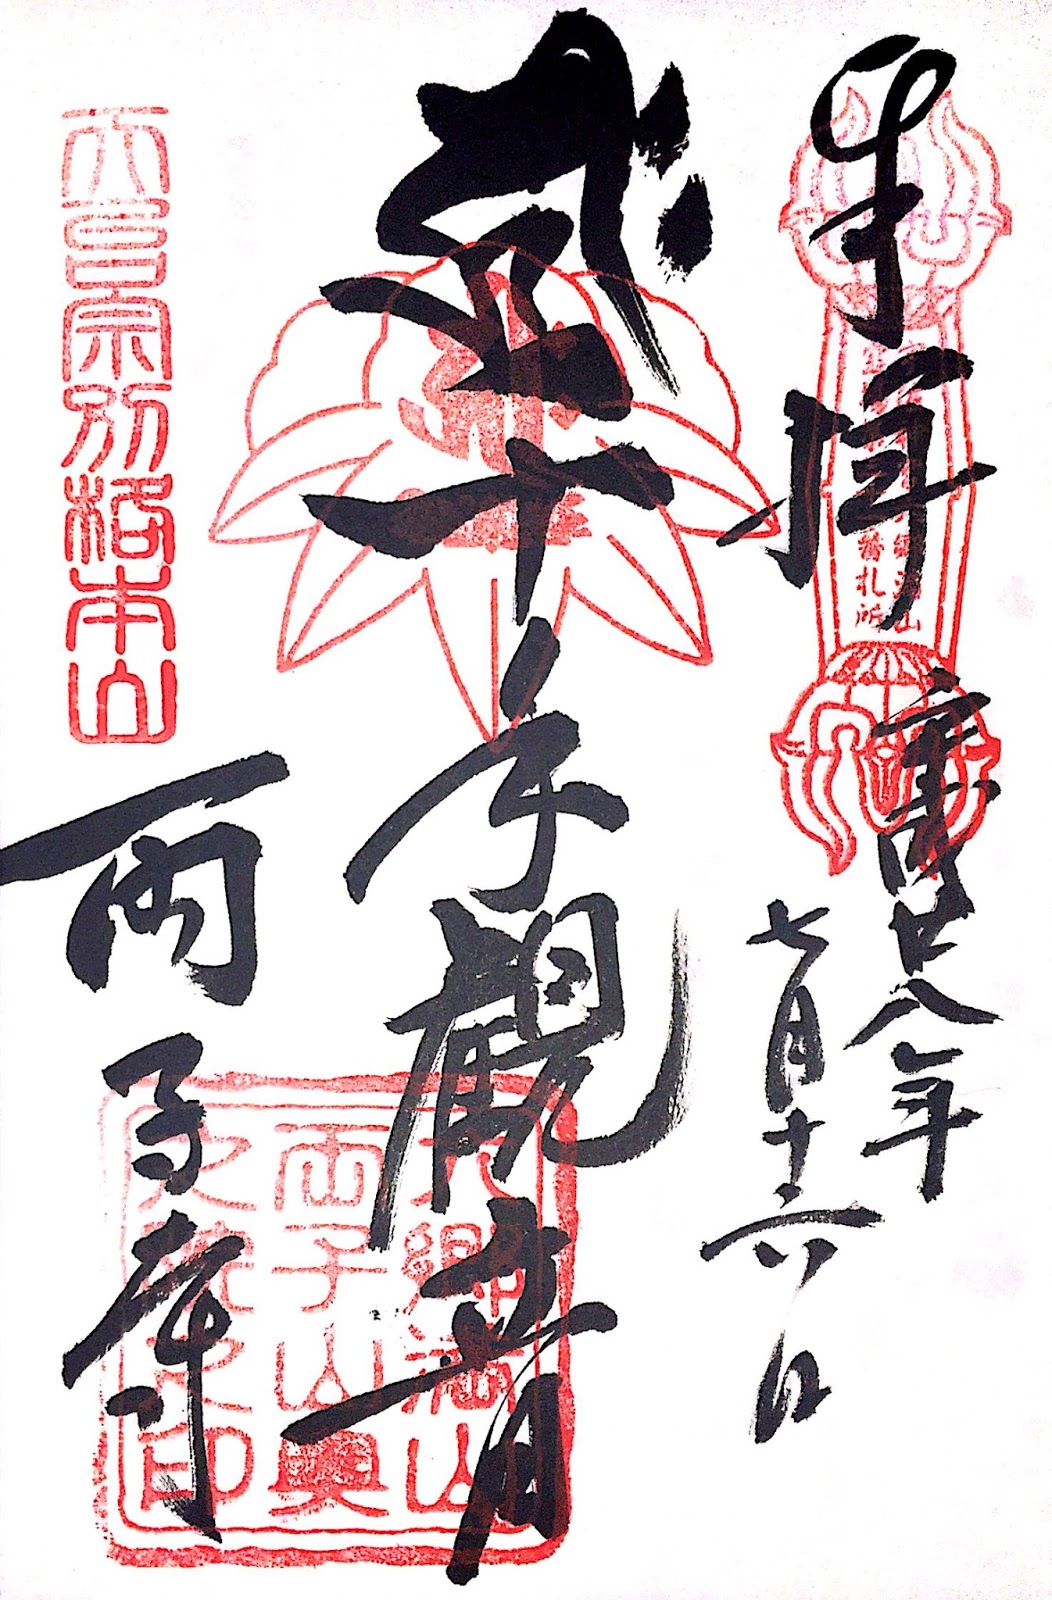 奉拝
廿八年
七月十六日
千手觀音
両子寺
天台宗別格本山
六郷満山
両子山奥
之院之印
番札所